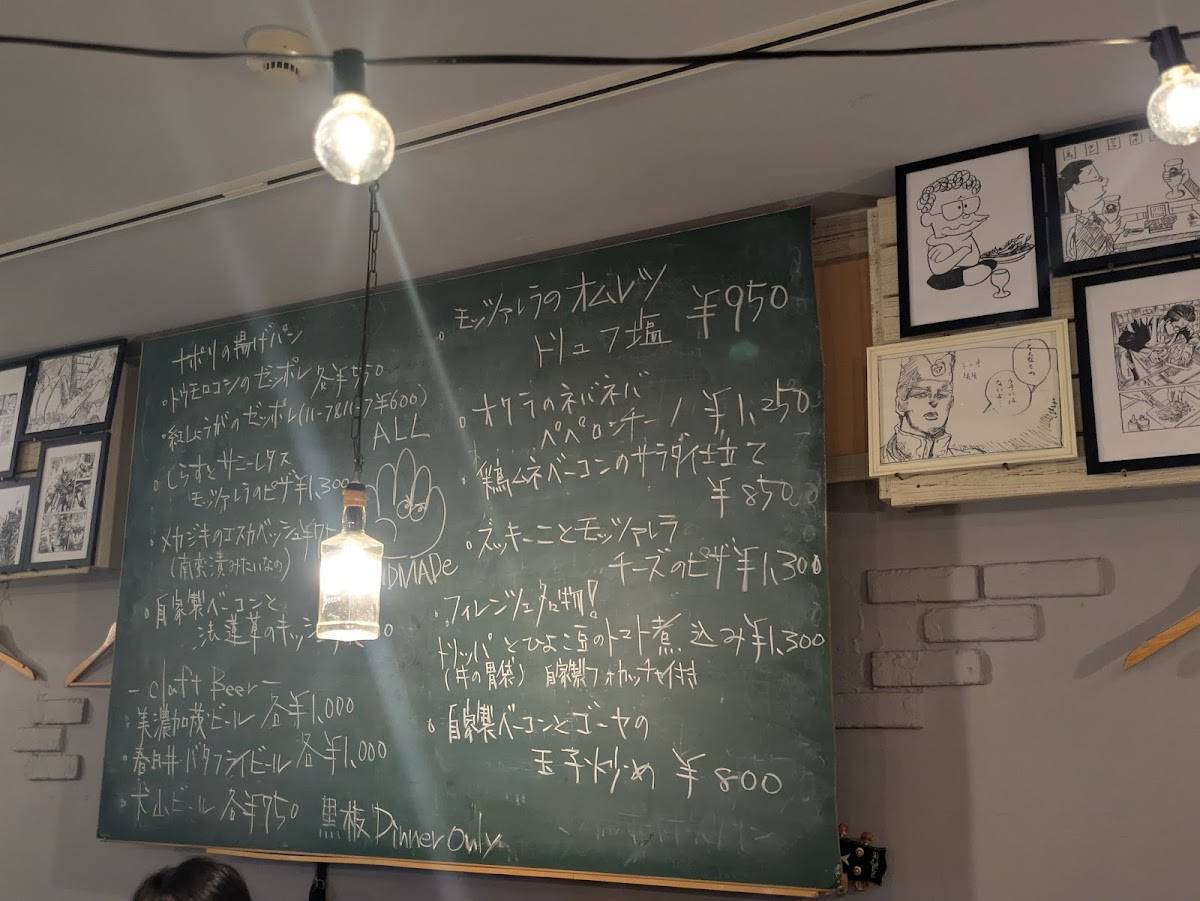 ナポリの揚げパン
・トウモロコシのゼッポレ 各¥550
・紅しょうがのゼッポレ(ハーフ&ハーフ¥600)
・しらすとサニーレタス
モッツァレラのピザ¥1,300
・メカジキのエスカベッシュ¥
(南蛮漬みたいなの)
・自家製ベーコンと
法蓮草のキッシュ
ALL
HANDMADe
- claft Beer -
・美濃加茂ビール 各¥1,000
・春日井バタフライビール 各¥1,000
・犬山ビール 各¥750
黒板Dinner Only
・モッツァレラのオムレツ
トリュフ塩 ¥950
・オクラのネバネバ
ペペロンチーノ ¥1,250
・鶏ムネベーコンのサラダ仕立て
¥850
・ズッキーニとモッツァレラ
チーズのピザ¥1,300
・フィレンツェ名物!
トリッパとひよこ豆のトマト煮込み¥1,300
(牛の胃袋) 自家製フォカッチャ付き
・自家製ベーコンとゴーヤの
玉子炒め ¥800